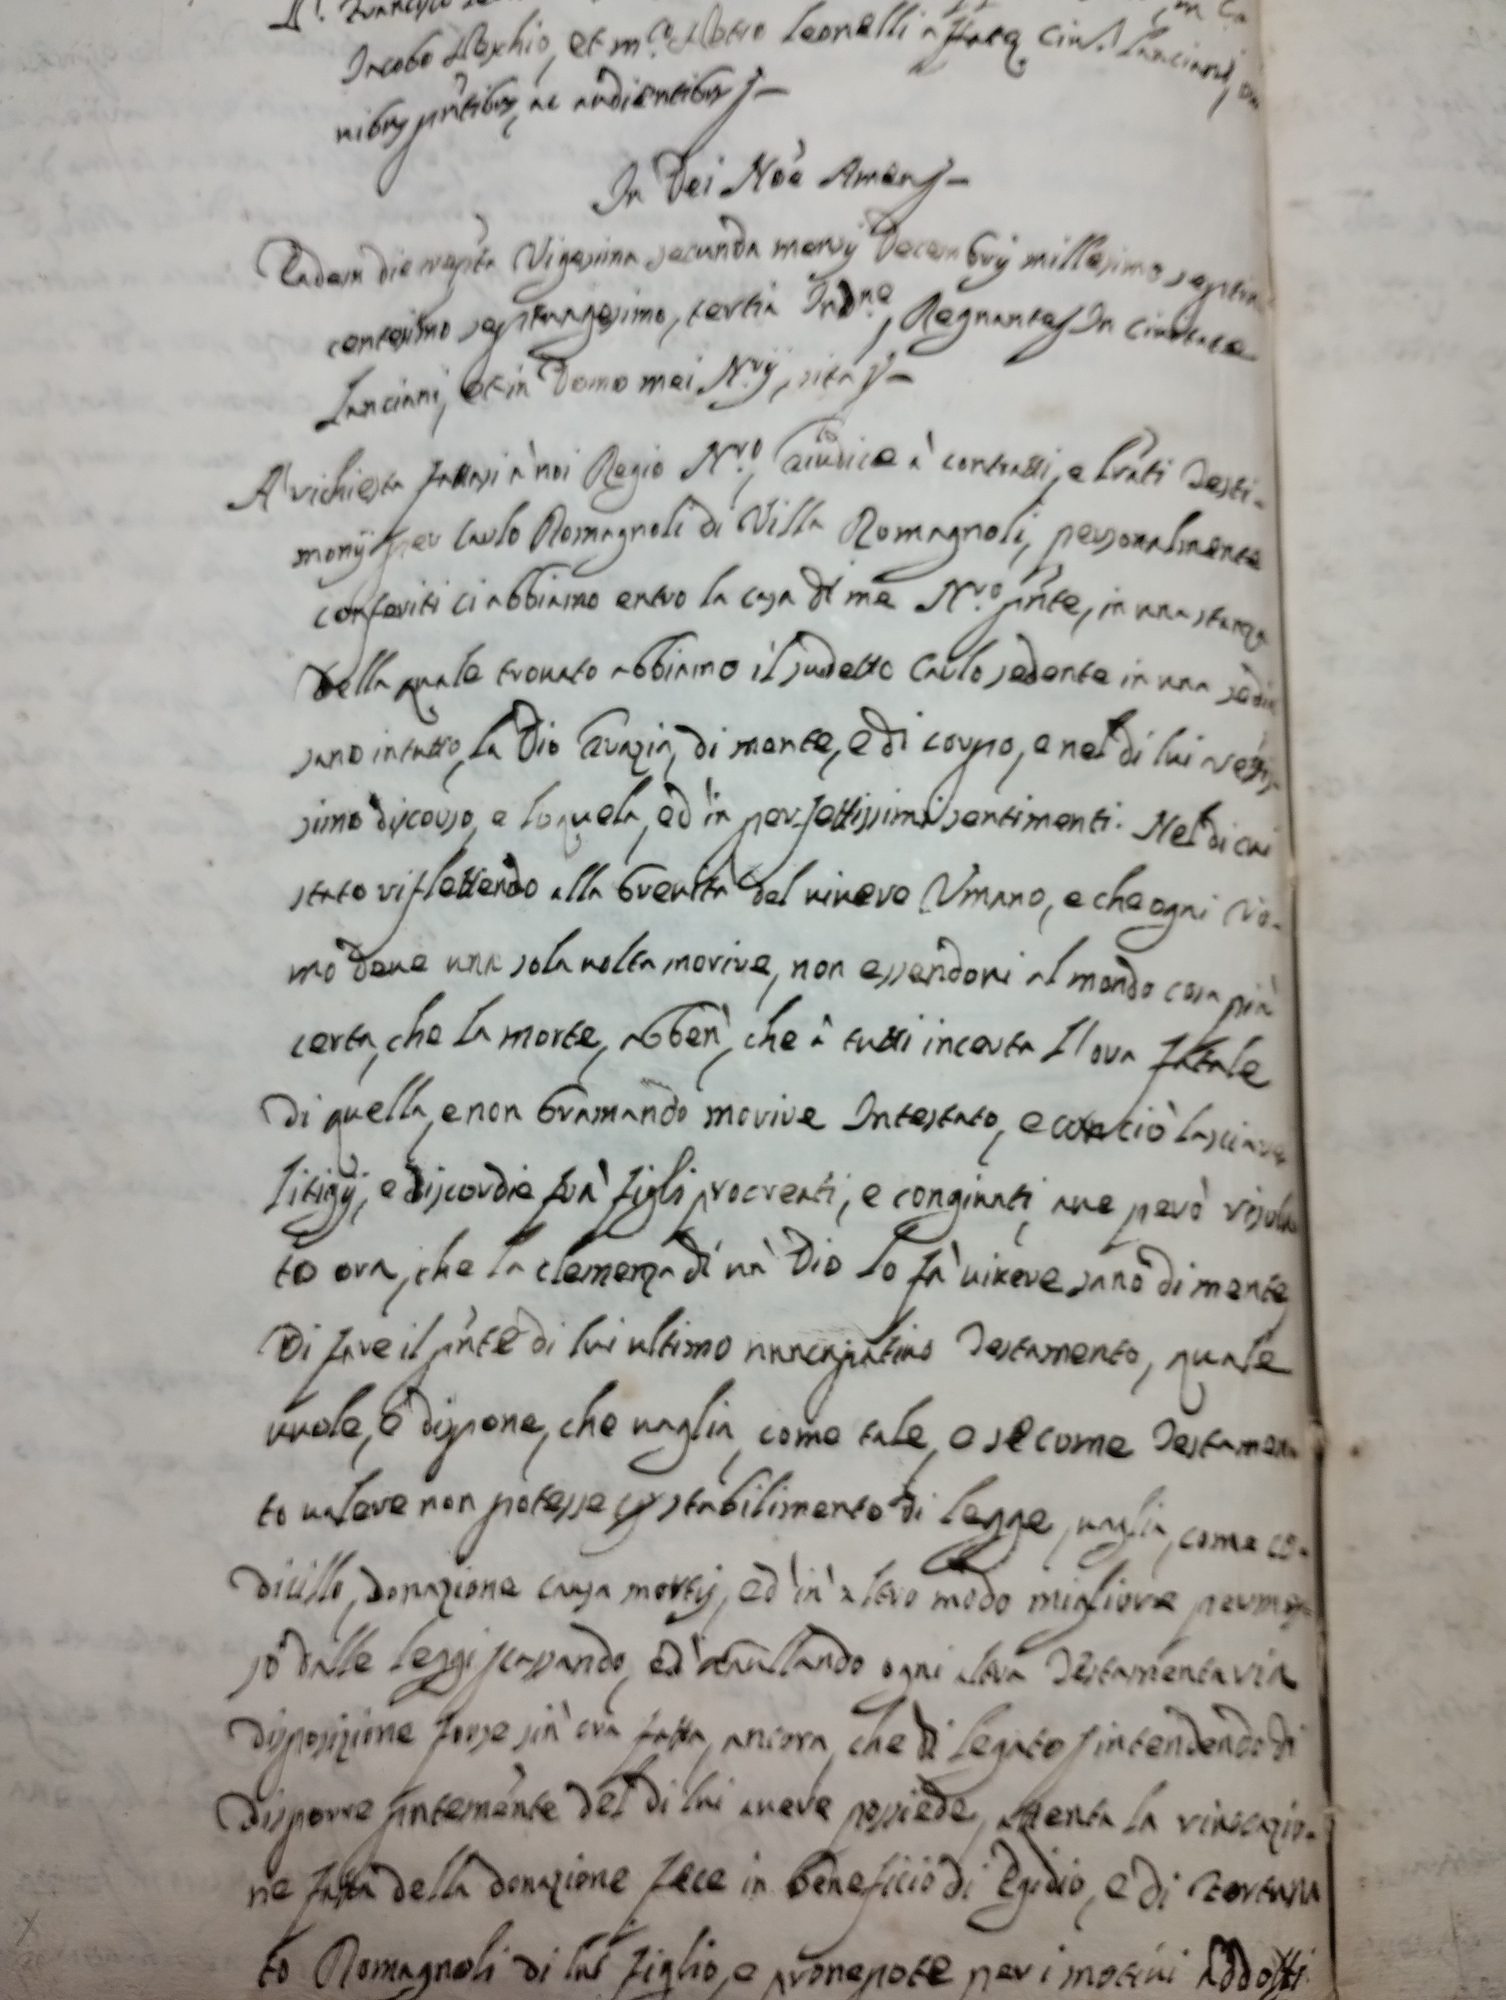 Jacobo et m.o Leonelli Civ.s Lanciani, om
nibus pntibus, ac audientibus
In Dei Nõe Amen
Eadem die vigesima secunda mensis Decembris millesimo septin
centesimo septuagesimo, tertia Ind.ne, Regnante In civitate
Lanciani, et in Domo mei N.rij, sita
A' richiesta fattasi à noi Regio N.ro, Giudice à contratti, e lrãti Testi-
monij per Carlo Romagnoli di Villa Romagnoli, personalmente
conferiti ci abbiamo entro la casa di me N.ro pñte, in una stanza
della quale trovato abbiamo il sudetto Carlo sedente in una sedia
sano in tutto, la Dio Grazia, di mente, e di corpo, e nel di lui
simo discorso, e loquela, ed' in perfettissimi sentimenti. Nel di cui
stato riflettendo alla brevità del vivere Umano, e che ogni Vo-
mo deve una sola volta morire, non essendovi al mondo cosa più
certa, che la morte, abben', che à tutti incerta l'ora fatale
di quella, e non bramando morire Intestato, e con ciò lasciare
litigij, e discordie frà figli procreati, e congionti, ave però risolu
to ora, che la clemenza di un' Dio lo fà vivere sano di mente
di fare il pñte di lui ultimo nuncupativo Testamento, quale
vuole, e dispone, che vaglia, come tale, e se come Testamen
to valere non potesse p stabilimento di legge, vaglia, come co-
dicillo, donazione causa mortis, ed' in' altro modo migliore permes
so dalle leggi scassando, ed' annullando ogni altra Testamentaria
disposizione forse sin' ora fatta, ancora, che di legato intendendo di
disporre pntemẽnte del di lui avere possiede, attenta la rivocazio-
ne fatta della donazione fece in beneficio di Egidio, e di Fortuna
to Romagnoli di lui figlio, e pronepote per i motivi addotti